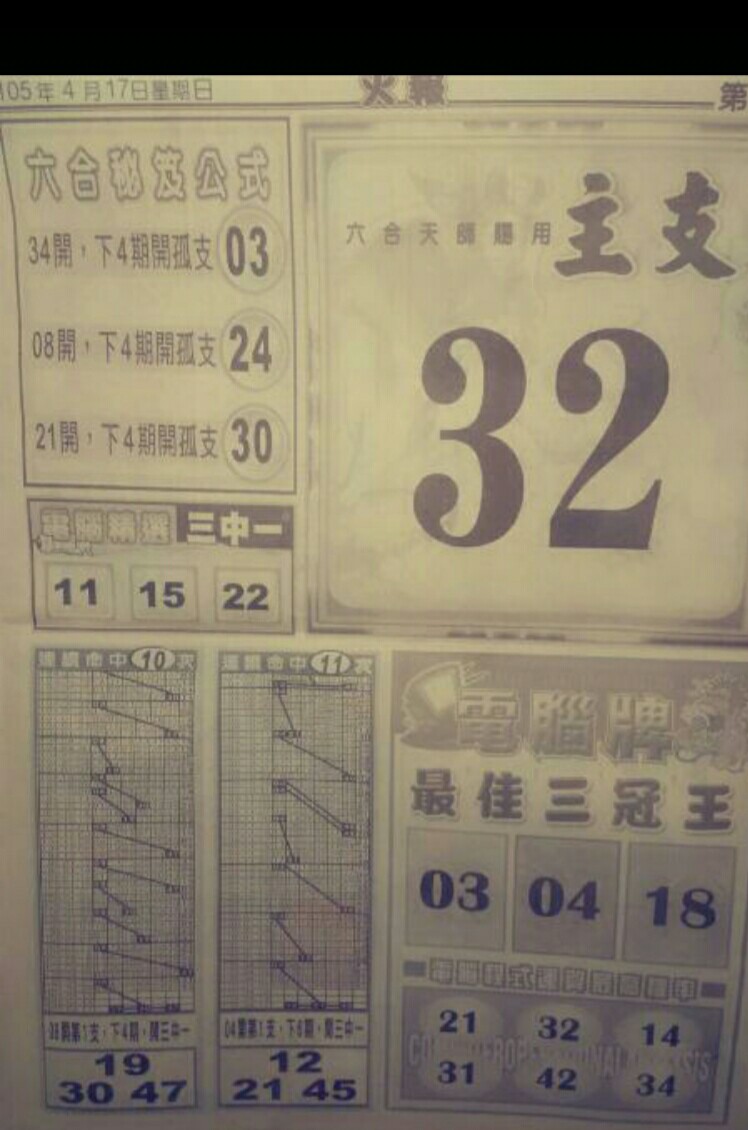 105年4月17日星期日
火報
第
六合秘笈公式
34開，下4期開孤支 03
08開，下4期開孤支 24
21開，下4期開孤支 30
六合天師賜用 主支
32
電腦精選 三中一
11 15 22
連續命中10次
開第1支，下4期，開三中一
19
30 47
連續命中11次
04開第1支，下6期，開三中一
12
21 45
電腦牌
最佳三冠王
03 04 18
電腦程式運算最高機率
21 32 14
31 42 34